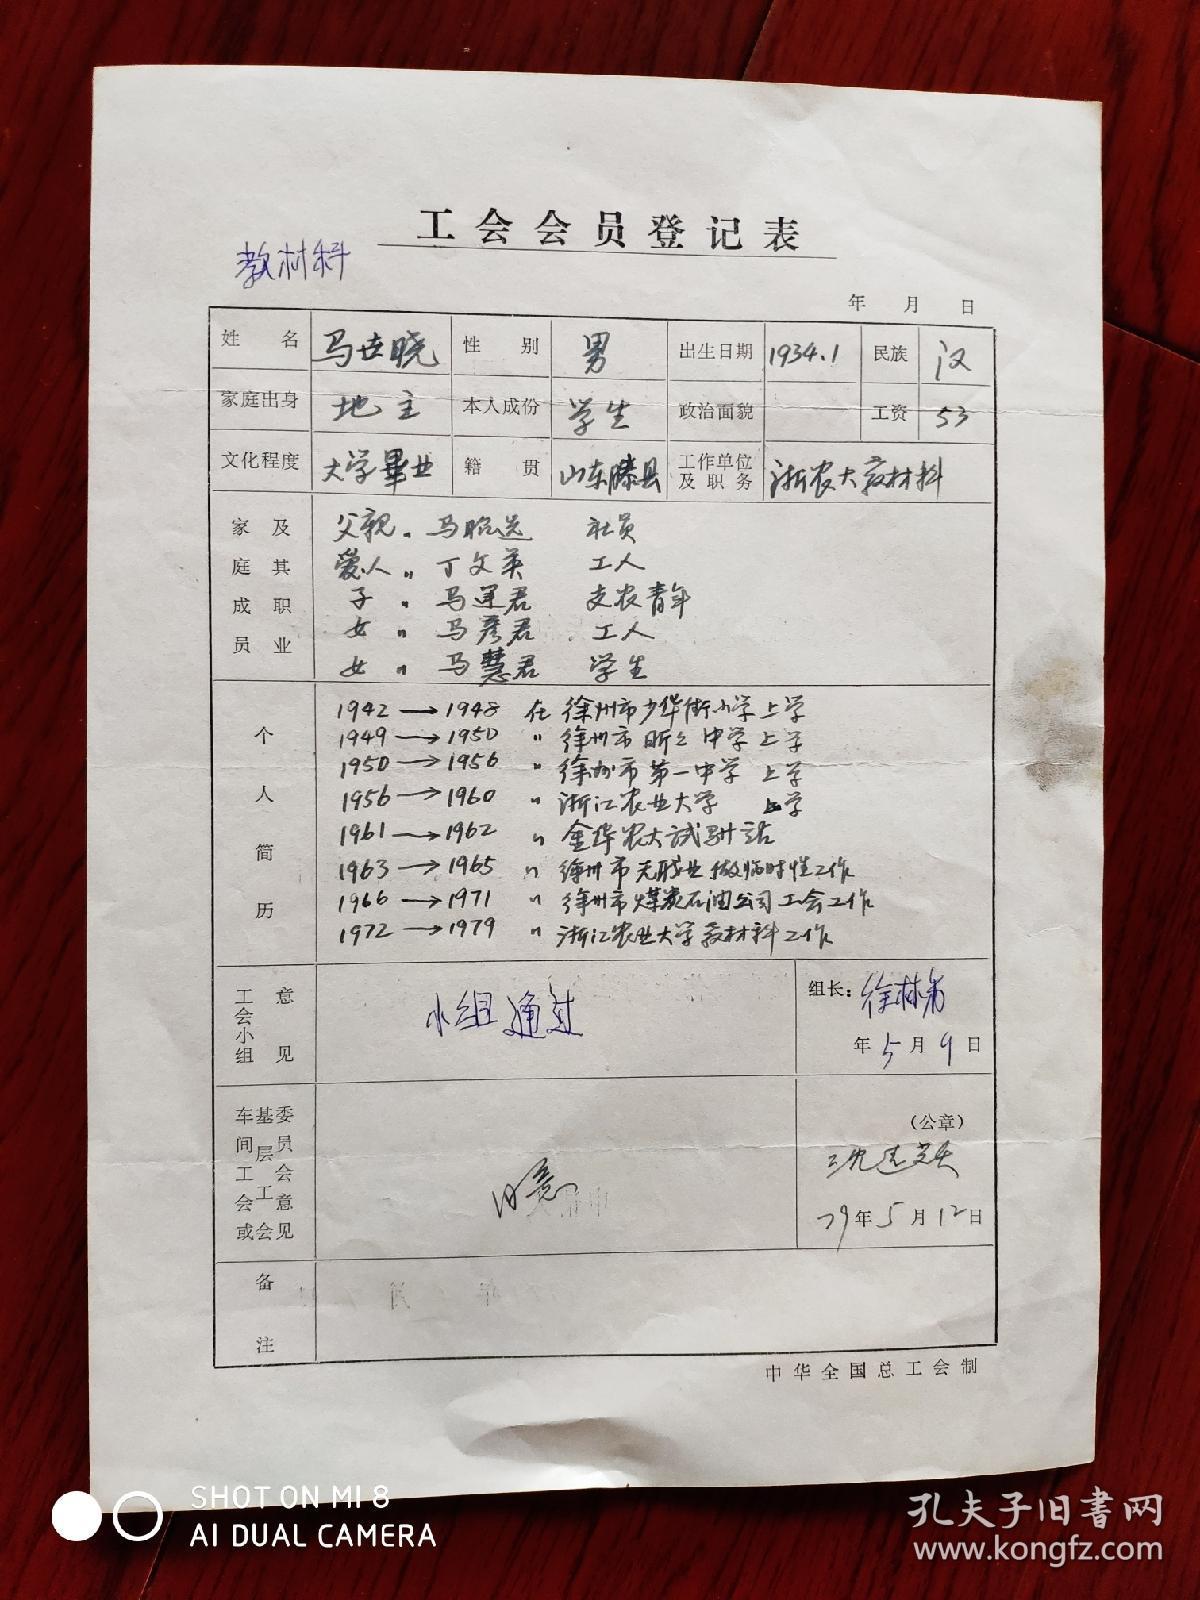 工会会员登记表
教材科
年 月 日
姓名 马世晓 性别 男 出生日期 1934.1 民族 汉
家庭出身 地主 本人成份 学生 政治面貌 工资 53
文化程度 大学毕业 籍贯 山东滕县 工作单位及职务 浙农大教材科
家庭成员及其职业
父親 〃 马昭送 社员
爱人 〃 丁文英 工人
子 〃 马运君 支农青年
女 〃 马彦君 工人
女 〃 马慧君 学生
个人简历
1942→1948 在徐州市少华街小学上学
1949→1950 〃 徐州市昕之中学上学
1950→1956 〃 徐州市第一中学上学
1956→1960 〃 浙江农业大学 上学
1961→1962 〃 金华农大试驗站
1963→1965 〃 徐州市无职业做临时性工作
1966→1971 〃 徐州市煤炭石油公司工会工作
1972→1979 〃 浙江农业大学教材科工作
工会小组意见 小组通过 组长: 徐林
年5月9日
车间工会或基层工会委员会意见 同意
(公章)
沈
79年5月12日
备注
中华全国总工会制
SHOT ON MI 8
AI DUAL CAMERA
孔夫子旧书网
www.kongfz.com